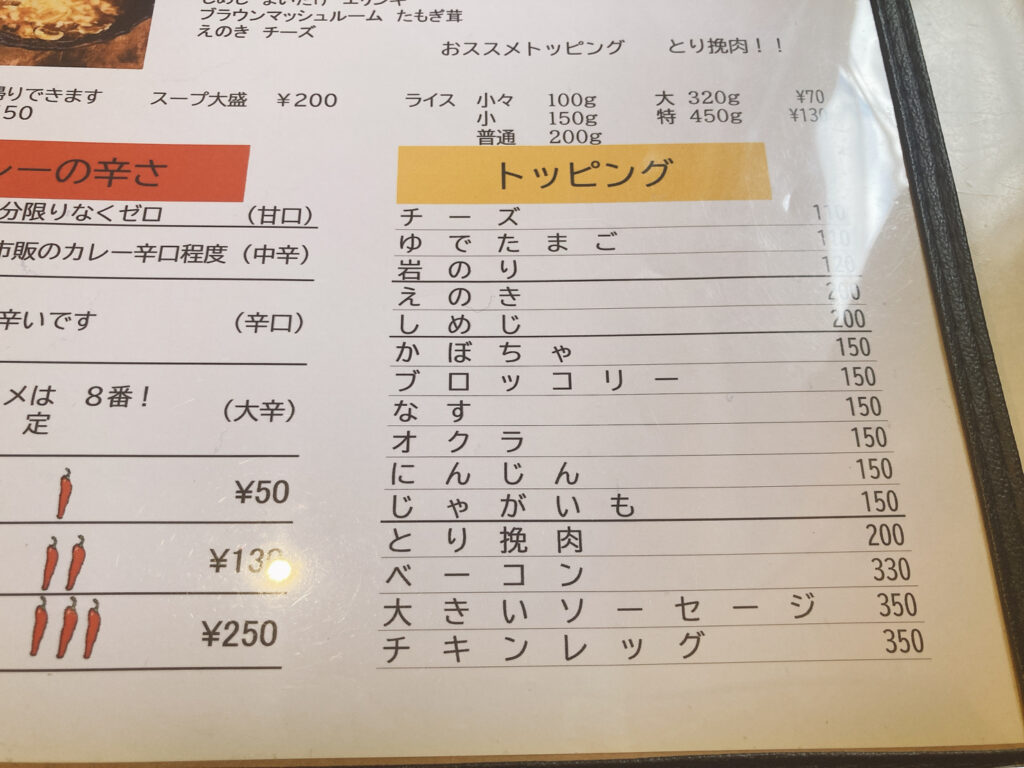 ブラウンマッシュルーム たもぎ茸
えのき チーズ
おススメトッピング とり挽肉！！
りできます スープ大盛 ¥200
50
ライス 小々 100g 大 320g ¥70
小 150g 特 450g ¥130
普通 200g
レーの辛さ
分限りなくゼロ （甘口）
市販のカレー辛口程度（中辛）
辛いです （辛口）
メは 8番！
定 （大辛）
¥50
¥130
¥250
トッピング
チーズ 110
ゆでたまご 110
岩のり 120
えのき 200
しめじ 200
かぼちゃ 150
ブロッコリー 150
なす 150
オクラ 150
にんじん 150
じゃがいも 150
とり挽肉 200
ベーコン 330
大きいソーセージ 350
チキンレッグ 350